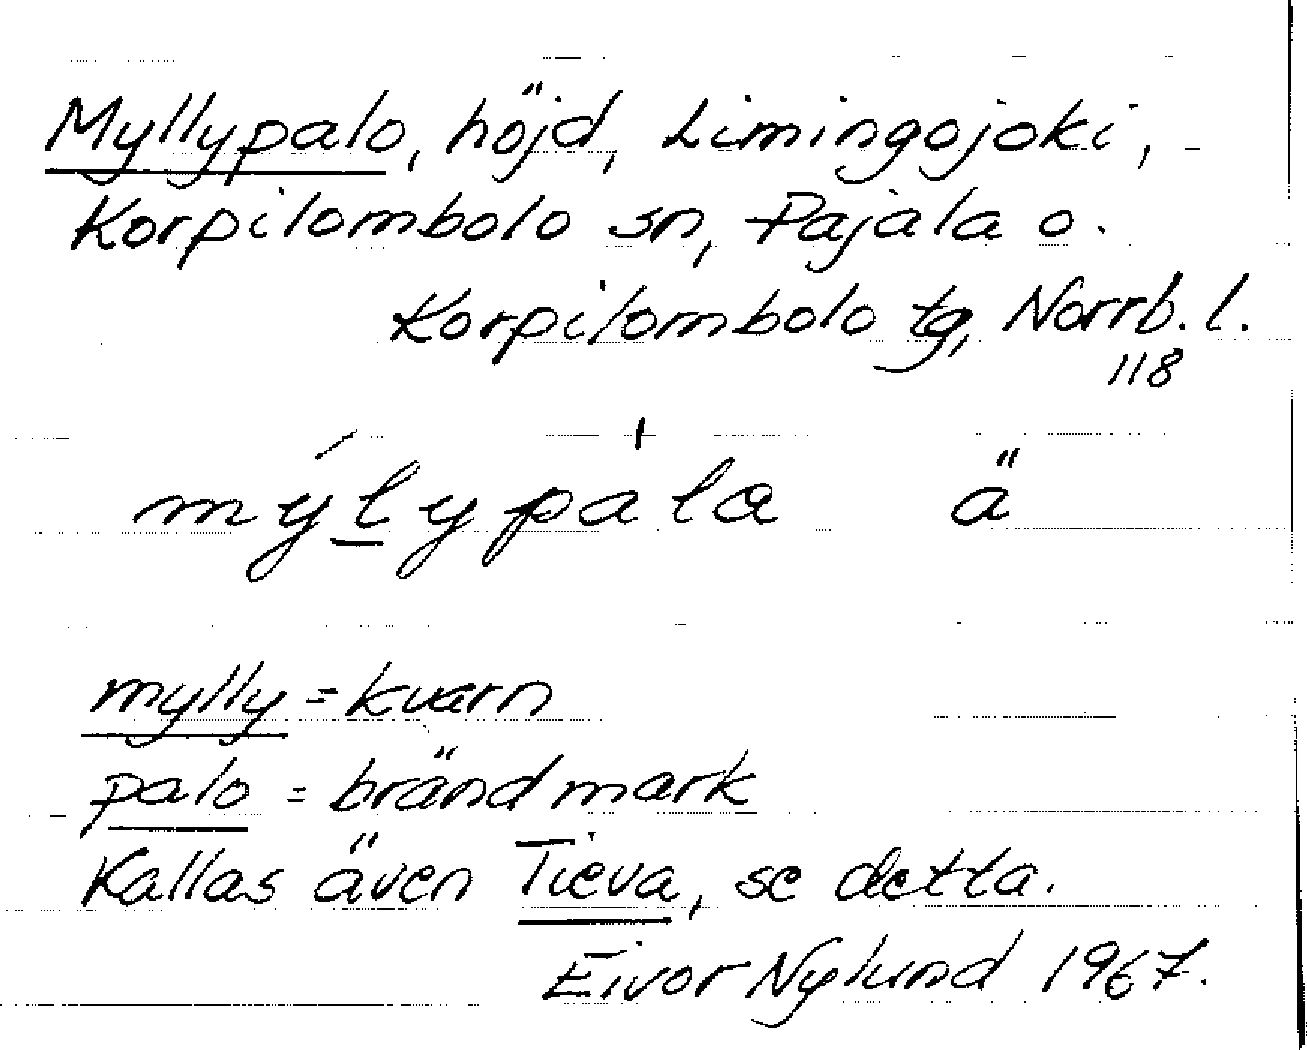 Myllypalo, höjd, Limingojoki,
Korpilombolo sn, Pajala o.
Korpilombolo tg, Norrb. l.
118
mýl̲ypàla ä
mylly = kvarn
palo = bränd mark
Kallas även Tieva, se detta.
Eivor Nylund 1967.